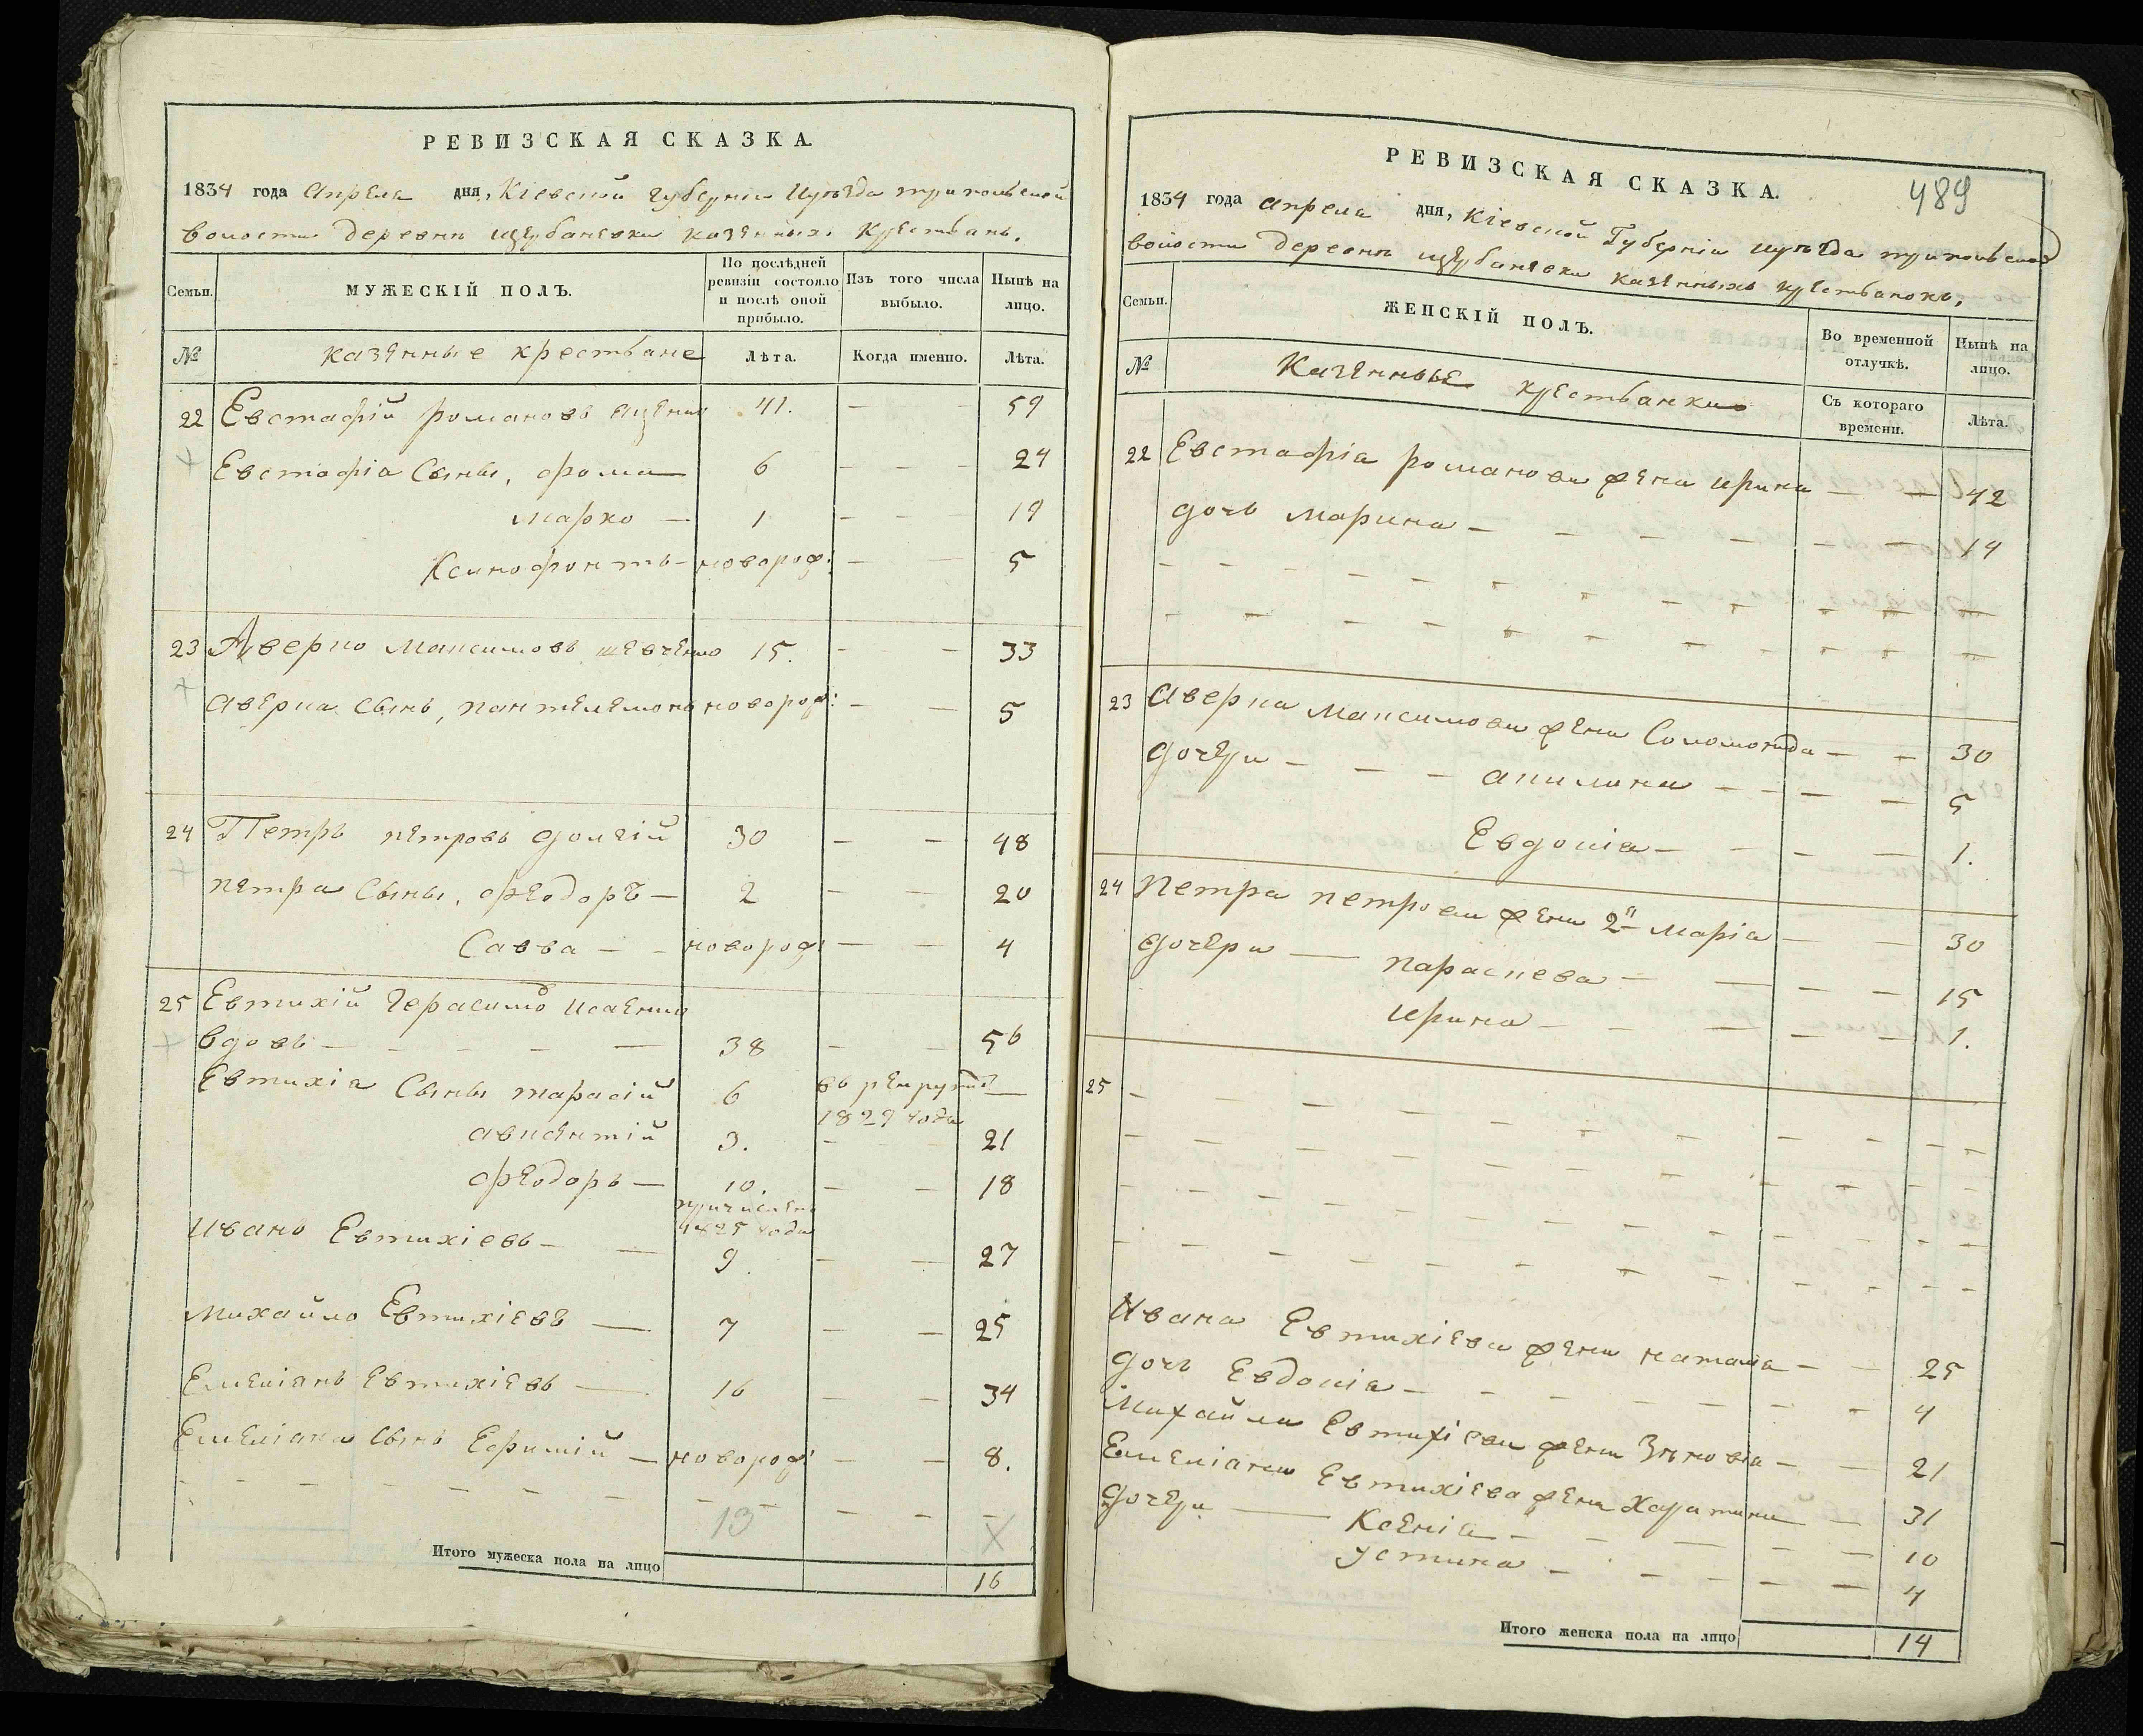 РЕВИЗСКАЯ СКАЗКА.
1834 года Апреля дня, Кіевской губерніи и уѣзда трипольской
волости деревни щербаневки казенныхъ крестьянъ.
Семьи.
МУЖЕСКІЙ ПОЛЪ.
По послѣдней ревизіи состояло и послѣ оной прибыло.
Изъ того числа выбыло.
Нынѣ на лицо.
№ казенные крестьяне Лѣта. Когда именно. Лѣта.
22 Евстафій романовъ 41. — — 59
Евстафіа Сыны, фома 6 — — — 24
марко — 1 — — — 19
Ксинофонтъ — новорож: — — 5
23 Аверко Максимовъ шевченко 15. — — 33
Аверка Сынъ, пантелемонъ новорож: — — 5
24 Петръ петровъ долгій 30 — — 48
петра Сыны, феодоръ — 2 — — 20
Савва — — новорож: — — 4
25 Евтихій Герасимо Исаенко
вдовъ — — — — — 38 — — 56
Евтихіа Сыны тарасій 6 въ рекруто —
1829 года
авксентій 3. — — 21
феодоръ — 10. — — 18
причислено
1825 года
Ивано Евтихіевъ — — 9 — — 27
Михайло Евтихіевъ — 7 — — 25
Емеліанъ Евтихіевъ — 16 — — 34
Емеліана Сынъ Ефимій — новорож: — — 8.
— — — — — — — — — — —
13 X
Итого мужеска пола на лицо 16
489
РЕВИЗСКАЯ СКАЗКА.
1834 года апреля дня, Кіевской Губерніи и уѣзда трипольской
волости деревни щербаневки казенныхъ крестьянокъ.
Семьи.
ЖЕНСКІЙ ПОЛЪ.
Во временной отлучкѣ.
Нынѣ на лицо.
№ Казенные крестьянки Съ котораго времени. Лѣта.
22 Евстафіа романова жена ирина — — 42
дочь марина — — — — — — — 14
— — — — — — — — — — —
— — — — — — — — — — —
23 Аверка Максимова жена Соломонида — — 30
дочери — — — акилина — — — — 5
Евдокіа — — — — 1.
24 Петра петрова жена 2я маріа — — 30
дочери — параскева — — — — 15
ирина — — — — — 1.
25 — — — — — — — — — — —
— — — — — — — — — — —
— — — — — — — — — — —
— — — — — — — — — — —
Ивана Евтихіева жена наталіа — — 25
дочь Евдокіа — — — — — — — 4
Михайла Евтихіева жена Зѣновіа — — 21
Емеліана Евтихіева жена Харитина — 31
дочери — Ксеніа — — — — — 10
устина — — — — — 4
Итого женска пола на лицо 14